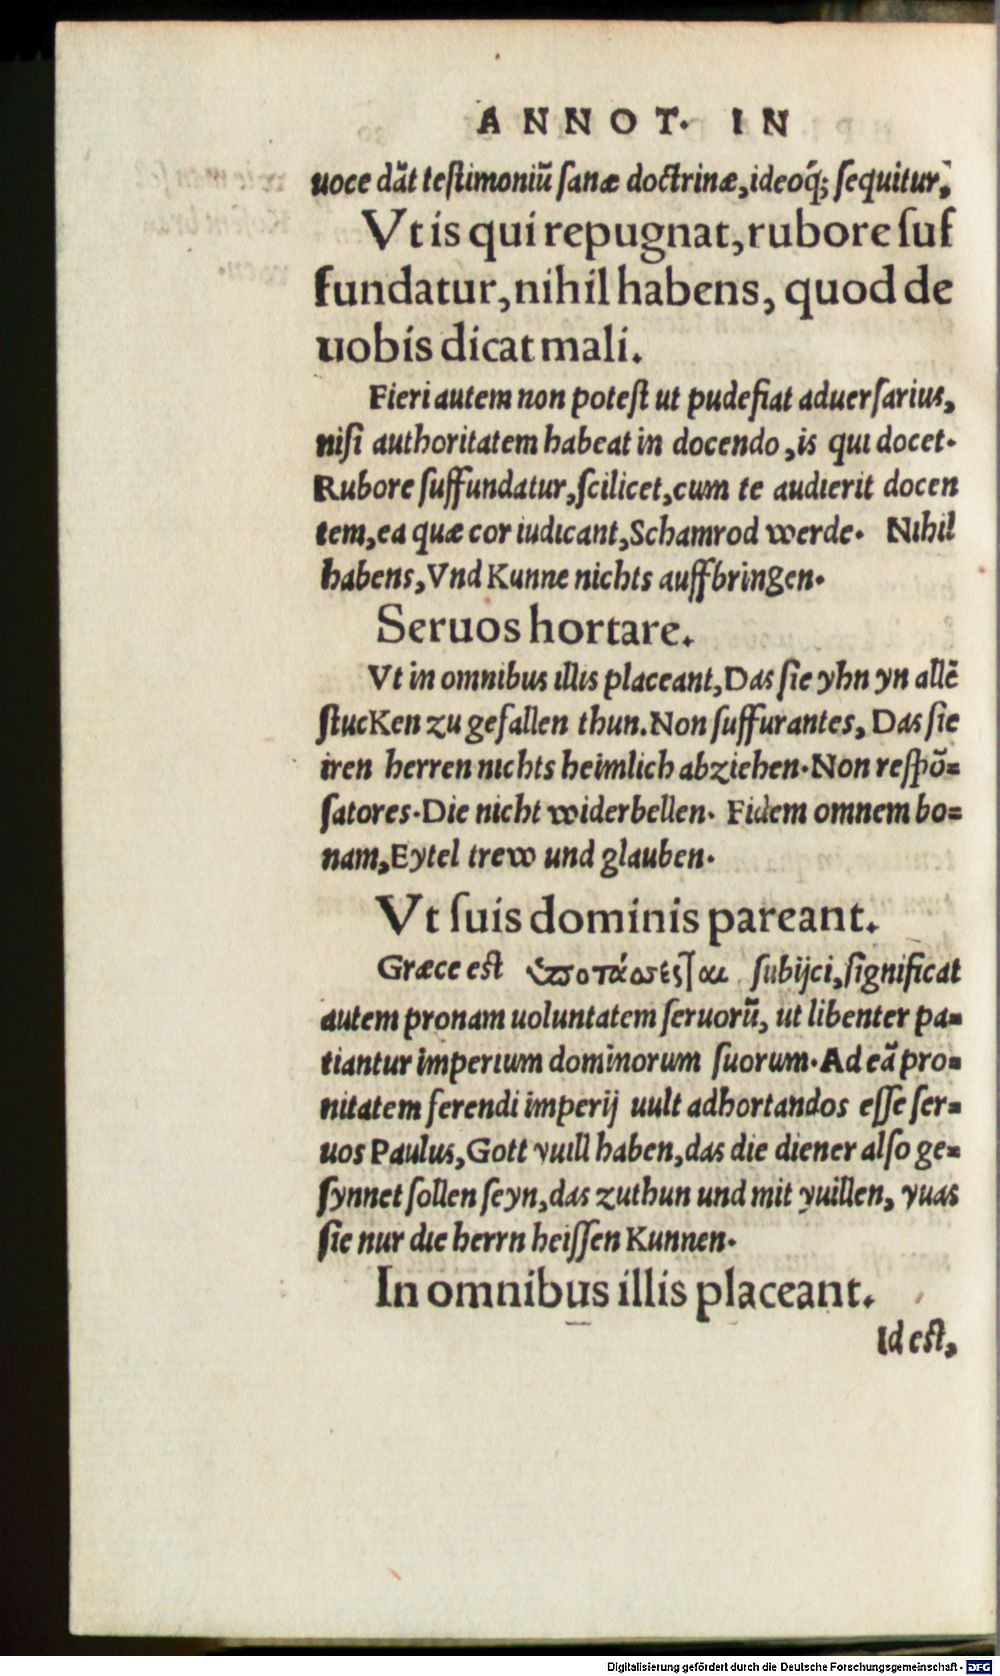 ANNOT. IN
uoce dãt testimoniũ sanæ doctrinæ, ideoq́; sequitur,
Vt is qui repugnat, rubore suf
fundatur, nihil habens, quod de
uobis dicat mali.
Fieri autem non potest ut pudefiat aduersarius,
nisi authoritatem habeat in docendo, is qui docet.
Rubore suffundatur, scilicet, cum te audierit docen
tem, ea quæ cor iudicant, Schamrod werde. Nihil
habens, Vnd Kunne nichts auffbringen.
Seruos hortare.
Vt in omnibus illis placeant, Das sie yhn yn allẽ
stucKen zu gefallen thun. Non suffurantes, Das sie
iren herren nichts heimlich abziehen. Non respõ=
satores. Die nicht widerbellen. Fidem omnem bo=
nam, Eytel trew und glauben.
Vt suis dominis pareant.
Græce est ὑποτάσσεσθαι subijci, significat
autem pronam uoluntatem seruorũ, ut libenter pa=
tiantur imperium dominorum suorum. Ad eã pro=
nitatem ferendi imperij uult adhortandos esse ser=
uos Paulus, Gott vuill haben, das die diener also ge=
synnet sollen seyn, das zuthun und mit vuillen, vuas
sie nur die herrn heissen Kunnen.
In omnibus illis placeant.
Id est,
Digitalisierung gefördert durch die Deutsche Forschungsgemeinschaft - DFG